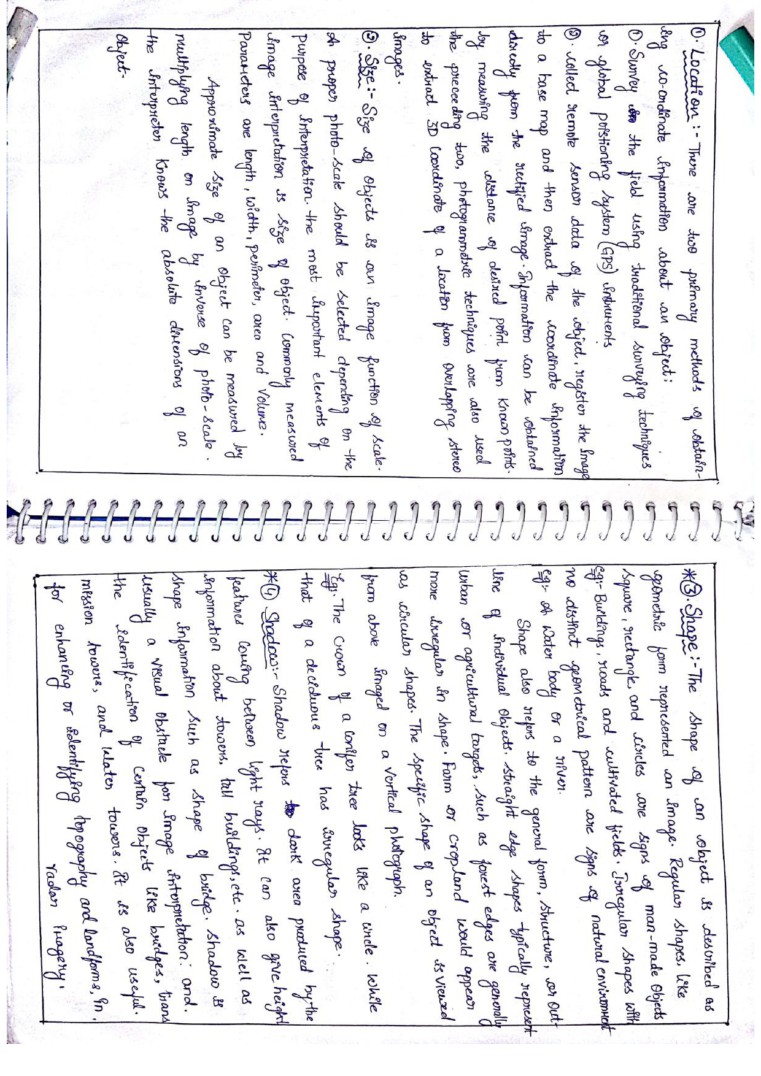 ①. Location :- There are two primary methods of obtain-
ing co-ordinate information about an object:
① Survey in the field using traditional surveying techniques
or global potstioning system (GPS) instruments
②. collect remote sensor data of the object, register the image
to a base map and then extract the coordinate information
directly from the rectified image. Information can be obtained
by measuring the distance of desired point from known points.
the preceeding two, photogrammetric techniques are also used
to extract 3D Coordinate of a location from overlapping stereo
images.
②. Size :- Size of objects is an image function of scale.
A proper photo-scale should be selected depending on the
purpose of interpretation. the most important elements of
image interpretation is size of object. Commonly measured
parameters are length, width, perimeter, area and volume.
Approximate size of an object can be measured by
multiplying length on image by inverse of photo-scale.
the interpreter knows the absolute dimensions of an
object.
*③. Shape :- The shape of an object is described as
geometric form represented an image. Regular shapes, like
square, rectangle and circles are signs of man-made objects
eg:- Buildings, roads and cultivated fields. Irregular shapes with
no distinct geometrical pattern are signs of natural environment
eg:- A water body or a river.
Shape also refers to the general form, structure, or out-
line of individual objects. straight edge shapes typically represent
urban or agricultural targets, such as forest edges are generally
more irregular in shape. Farm or cropland would appear
as circular shapes. The specific shape of an object is viewed
from above imaged on a vertical photograph.
Eg:- The crown of a conifer tree looks like a circle. while
that of a deciduous tree has irregular shape.
*④ Shadow:- Shadow refers to dark area produced by the
features coming between light rays. it can also give height
information about towers, tall buildings, etc. as well as
shape information such as shape of bridge. shadow is
usually a visual obstacle for image interpretation: and.
the identification of certain objects like bridges, trans
mission towers, and water towers. it is also useful.
for enhancing or identifying topography and landforms, in,
radar Imagery.